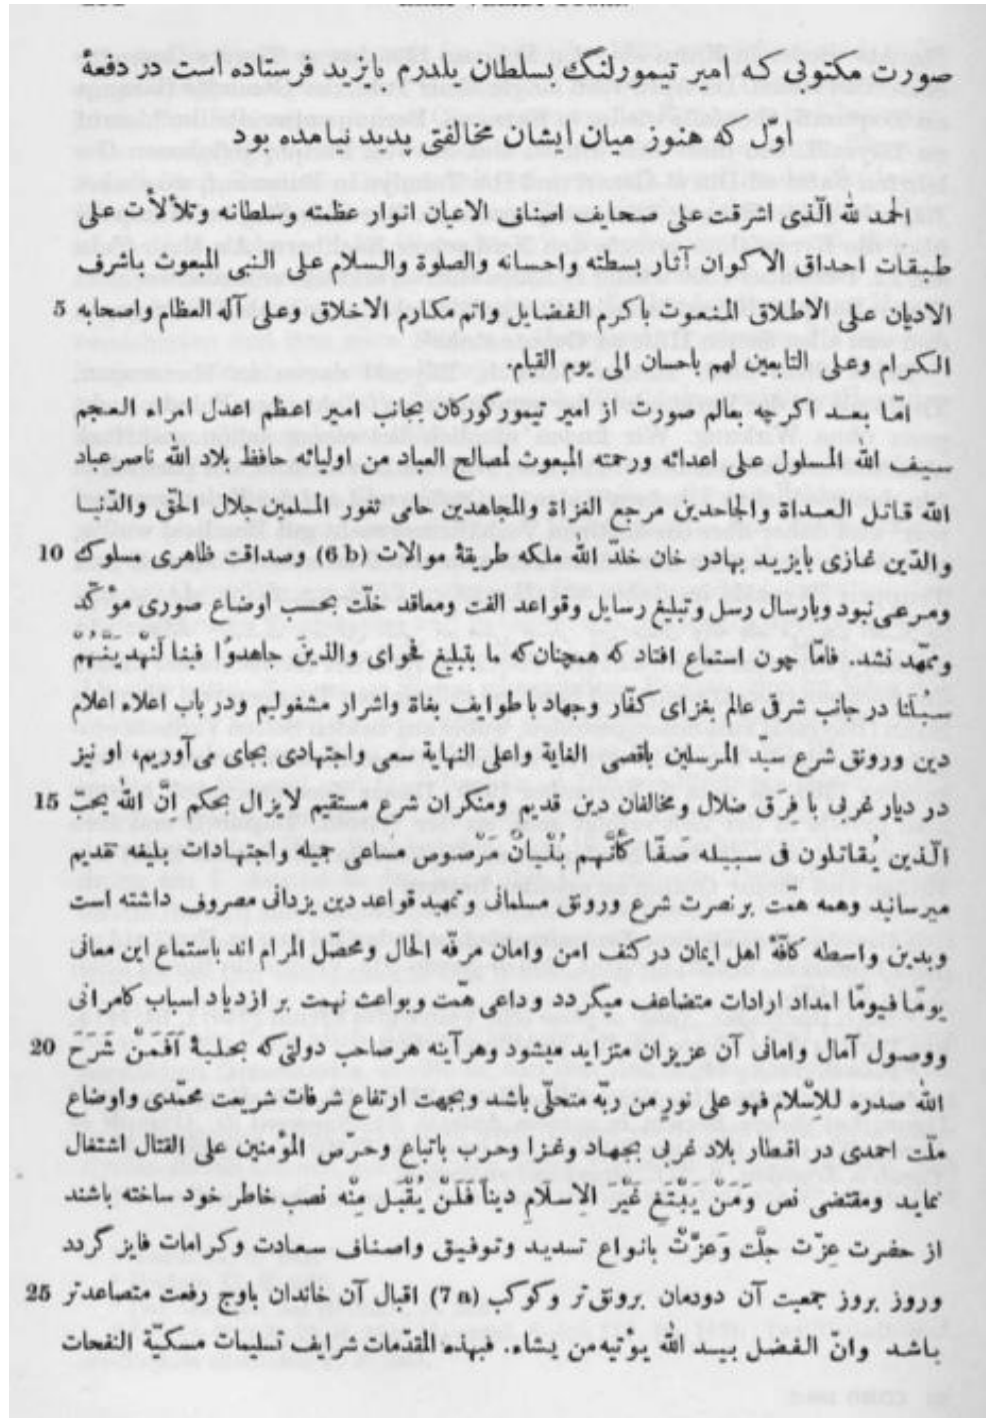 صورت مكتوبى كه امير تيمورلنگ بسلطان يلدرم بايزيد فرستاده است در دفعهٔ
اوّل كه هنوز ميان ايشان مخالفتى پديد نيامده بود
الحمد لله الّذى اشرقت على صحايف اصناف الاعيان انوار عظمته وسلطانه وتلألأت على
طبقات احداق الاكوان آثار بسطته واحسانه والصلوة والسلام على النبى المبعوث باشرف
الاديان على الاطلاق المنعوت باكرم الفضايل واتم مكارم الاخلاق وعلى آله العظام واصحابه 5
الكرام وعلى التابعين لهم باحسان الى يوم القيام.
امّا بعد اكرچه بعالم صورت از امير تيمور گوركان بجانب امير اعظم اعدل امراء العجم
سيف الله المسلول على اعدائه ورحمته المبعوث لمصالح العباد من اوليائه حافظ بلاد الله ناصر عباد
الله قاتل العداة والجاحدين مرجع الغزاة والمجاهدين حامى ثغور المسلمين جلال الحقّ والدّنيا
والدّين غازى بايزيد بهادر خان خلّد الله ملكه طريقهٔ موالات (6 b) وصداقت ظاهرى مسلوك 10
ومرعى نبود وبارسال رسل وتبليغ رسايل وقواعد الفت ومعاقد خلّت بحسب اوضاع صورى مؤكّد
وممهّد نشد. فامّا چون استماع افتاد كه همچنان‌كه ما بتبليغ فحواى والذينَ جاهدوُا فينا لَنَهْدِيَنَّهُمْ
سبُلَنا در جانب شرقى عالم بغزاى كفّار وجهاد با طوايف بغاة واشرار مشغوليم ودر باب اعلاء اعلام
دين ورونق شرع سيّد المرسلين باقصى الغاية واعلى النهاية سعى واجتهادى بجاى مى‌آوريم، او نيز
در ديار غربى با فِرَق ضلال ومخالفان دين قديم ومنكران شرع مستقيم لايزال بحكم اِنَّ الله يحبّ 15
الّذين يُقاتلون فى سبيله صَفّا كَأنَّهم بُنْيانٌ مَرْصوص مساعى جميله واجتهادات بليغه تقديم
ميرسانيد وهمه همّت بر نصرت شرع ورونق مسلمانى وتمهيد قواعد دين يزدانى مصروف داشته است
وبدين واسطه كافّهٔ اهل ايمان در كنف امن وامان مرفّه الحال ومحصّل المرام اند باستماع اين معانى
يومًا فيومًا امداد ارادات متضاعف ميگردد وداعى همّت وبواعث نهمت بر ازدياد اسباب كامرانى
ووصول آمال وامانى آن عزيزان متزايد ميشود وهرآينه هر صاحب دولتى كه بحليهٔ اَفَمَنْ شَرَحَ 20
الله صدره للاِسْلام فهو على نورٍ من ربّه متحلّى باشد وبجهت ارتفاع شرفات شريعت محمّدى واوضاع
ملّت احمدى در اقطار بلاد غربى بجهاد وغزا وحرب باتباع وحرّص المؤمنين على القتال اشتغال
نمايد ومقتضى نص وَمَنْ يَبْتَغِ غَيْرَ الاِسلامِ ديناً فَلَنْ يُقْبَل مِنْه نصب خاطر خود ساخته باشند
از حضرت عزّت جلَّت وَعزَّتْ بانواع تسديد وتوفيق واصناف سعادت وكرامات فايز گردد
وروز بروز جمعيت آن دودمان برونق‌تر وكوكب (7 a) اقبال آن خاندان باوج رفعت متصاعدتر 25
باشد وانّ الفضل بيد الله يؤتيه من يشاء. فبهذه المقدّمات شرايف تسليمات مسكيّة النفحات